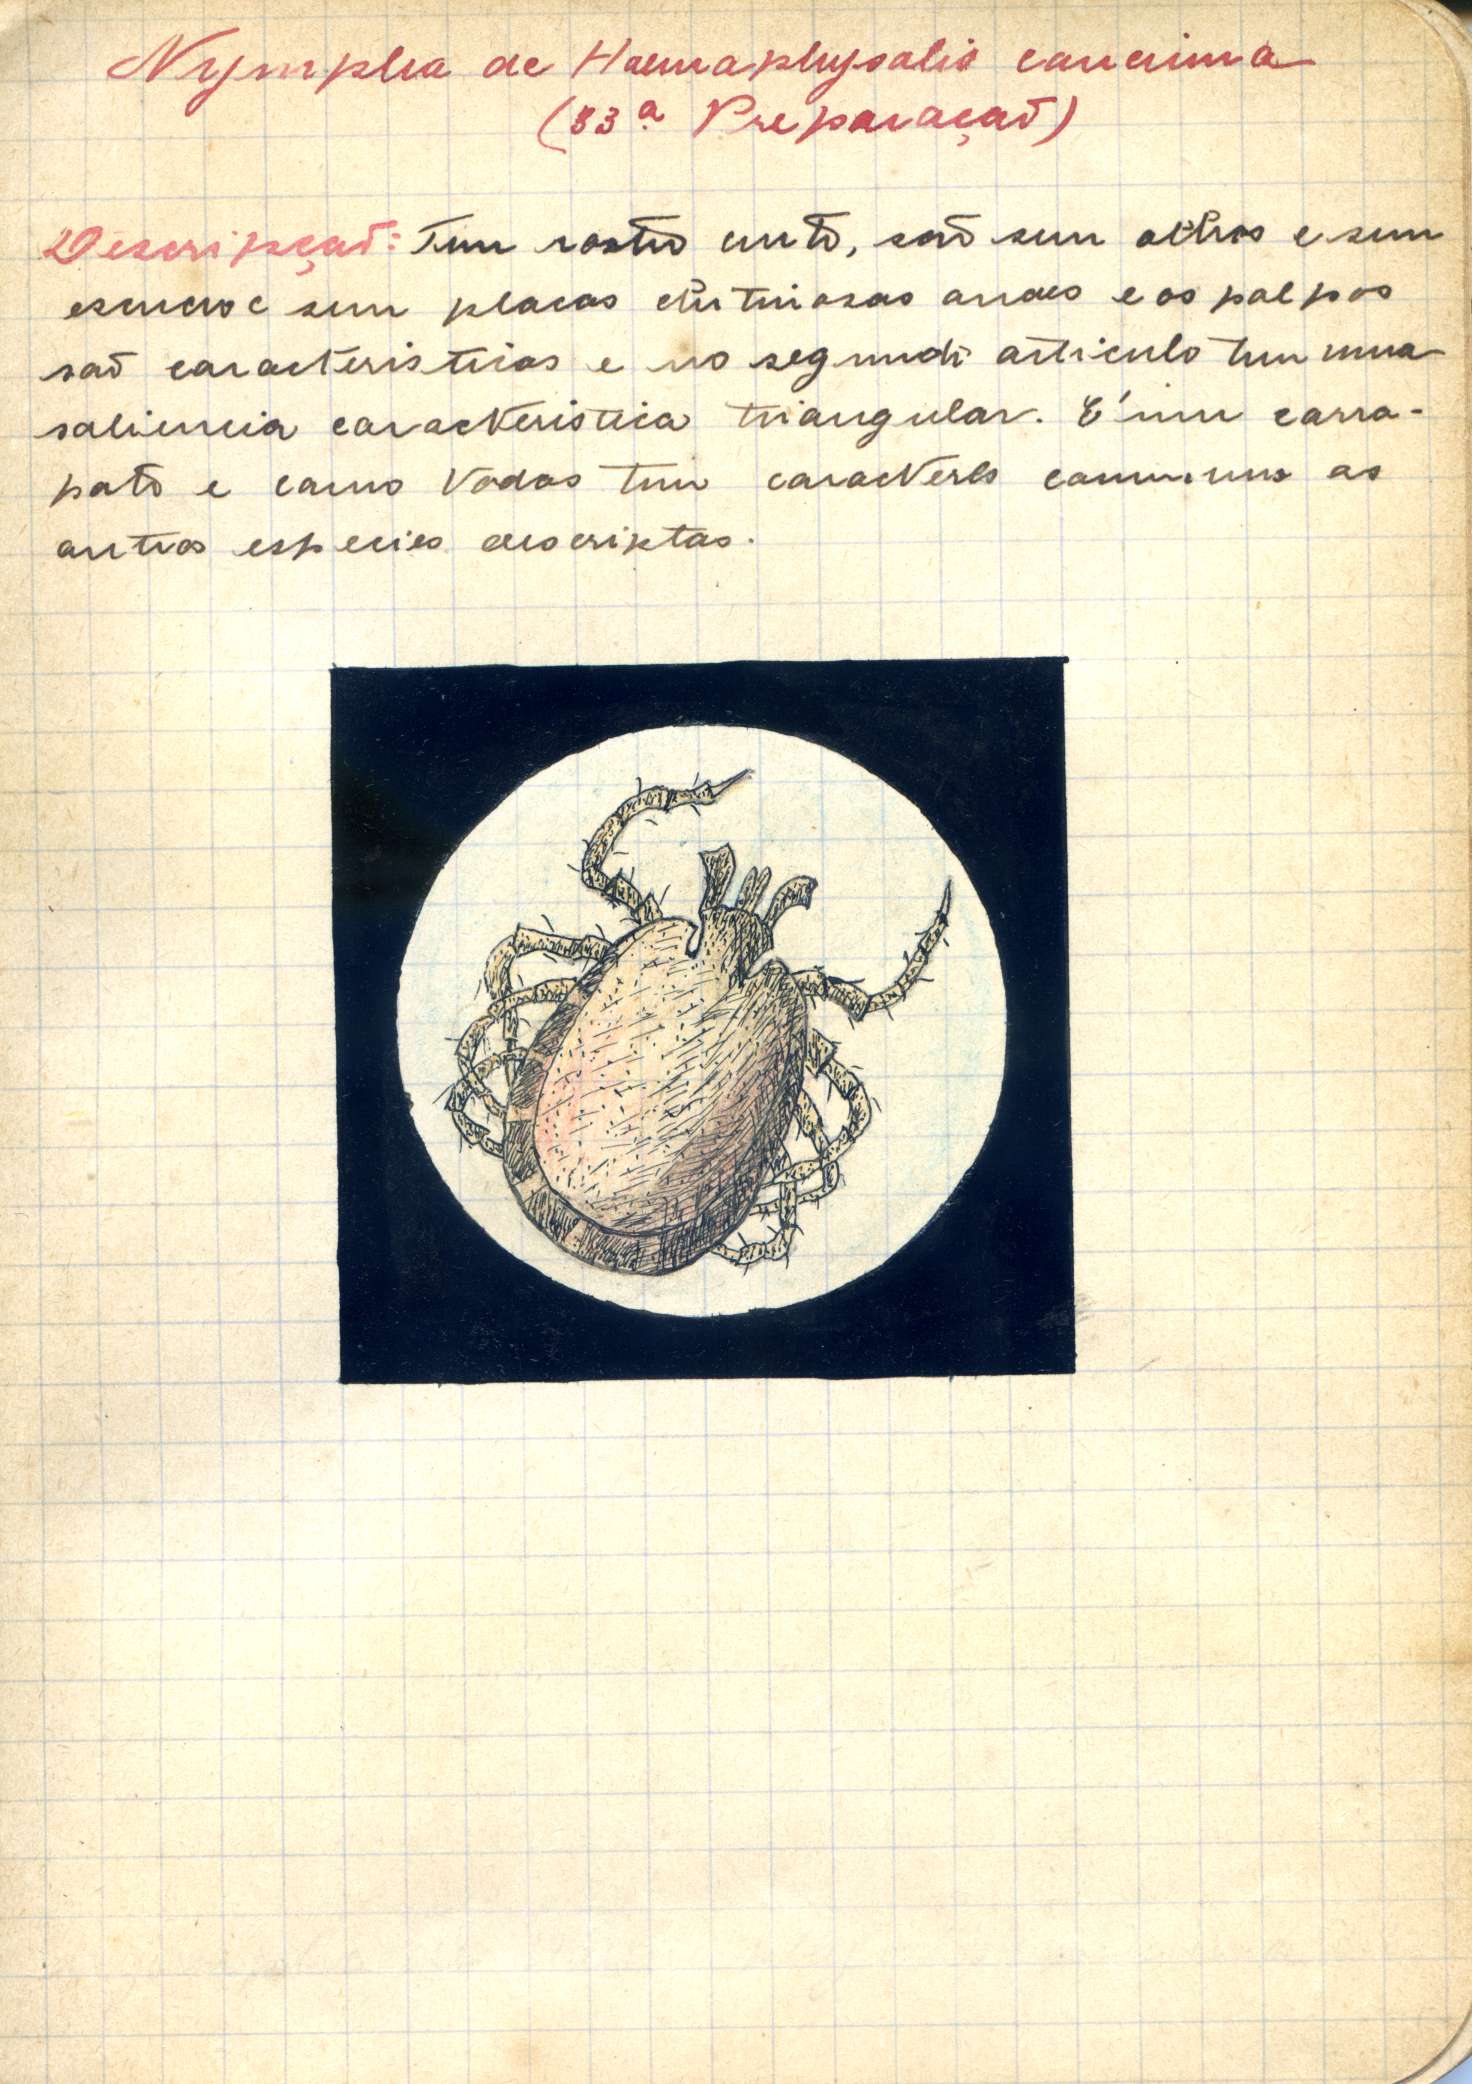 Nympha de Haemaphysalis concinna
(33ª Preparação)
Descripção: Tem rostro curto, são sem olhos e sem
escudo e sem placas chitinosas anaes e os palpos
são caracteristicos e no segundo articulo tem uma
saliencia caracteristica triangular. E' um carra-
pato e como todos tem caracteres communs as
outras especies descriptas.